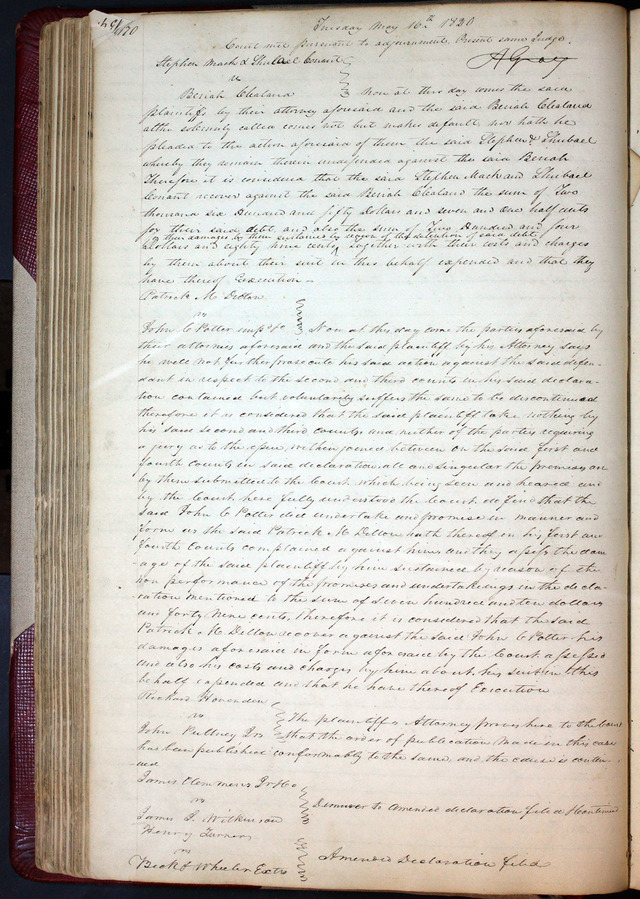 Tuesday May 16th 1820
Court met pursuant to adjournment. Present same Judge.
Stephen Mack & Shubael Conant
A Gray
vs
Beriah Clealand Now at this day comes the said
plaintiffs by their attorney aforesaid and the said Beriah Clealand
altho solemnly called comes not but makes default nor hath he
pleaded to the action aforesaid of them the said Stephen & Shubael
whereby they remain therein undefended against the said Beriah
Therefore it is considered that the said Stephen Mack and Shubael
Conant recover against the said Beriah Clealand the sum of Two
thousand six Hundred and fifty dollars and seven and One half cents
for their said debt and also the sum of Two Hundred and four
for their damages by them sustained by reason of the detention of said debt
dollars and eighty nine cents together with their costs and charges
by them about their suit in this behalf expended and that they
have thereof Execution
Patrick McDellow
vs
John C Potter Now at this day come the parties aforesaid by
their attornies aforesaid and the said plaintiff by his Attorney says
he will not further prosecute his said action against the said defen-
dant in respect to the second and third counts in his said declara-
tion contained but voluntarily suffers the same to be discontinued
therefore it is considered that the said plaintiff take nothing by
his said second and third Counts and neither of the parties requiring
a jury as to the issue within joined between on the said first and
fourth Counts in said declaration all and singular the premises are
by them submitted to the Court which being seen and heared and
by the Court here fully understood the Court do find that the
said John C Potter did undertake and promise in manner and
form as the said Patrick McDellow hath thereof in his first and
fourth Counts complained against him and they assess the dam
-age of the said plaintiff by him sustained by reason of the
non performance of the promises and undertakings in the decla-
-ration mentioned to the sum of seven hundred and ten dollars
and forty nine cents, Therefore it is considered that the said
Patrick McDellow recover against the said John C Potter his
damages aforesaid in form aforesaid by the Court assessed
and also his costs and charges by him about his suit in this
behalf expended and that he have thereof Execution
Richard Havenden
vs The plaintiffs Attorney proves here to the Court
John Pultney Jrs that the order of publication made in this case
has been published conformably to the same, and the cause is contin-
ued
James Clemmens Jr &Co
vs Demurrer to Amended declaration filed & continued
James S. Wilkinson
Henry Turner
vs
Beck & Wheeler Extrs Amended Declaration filed